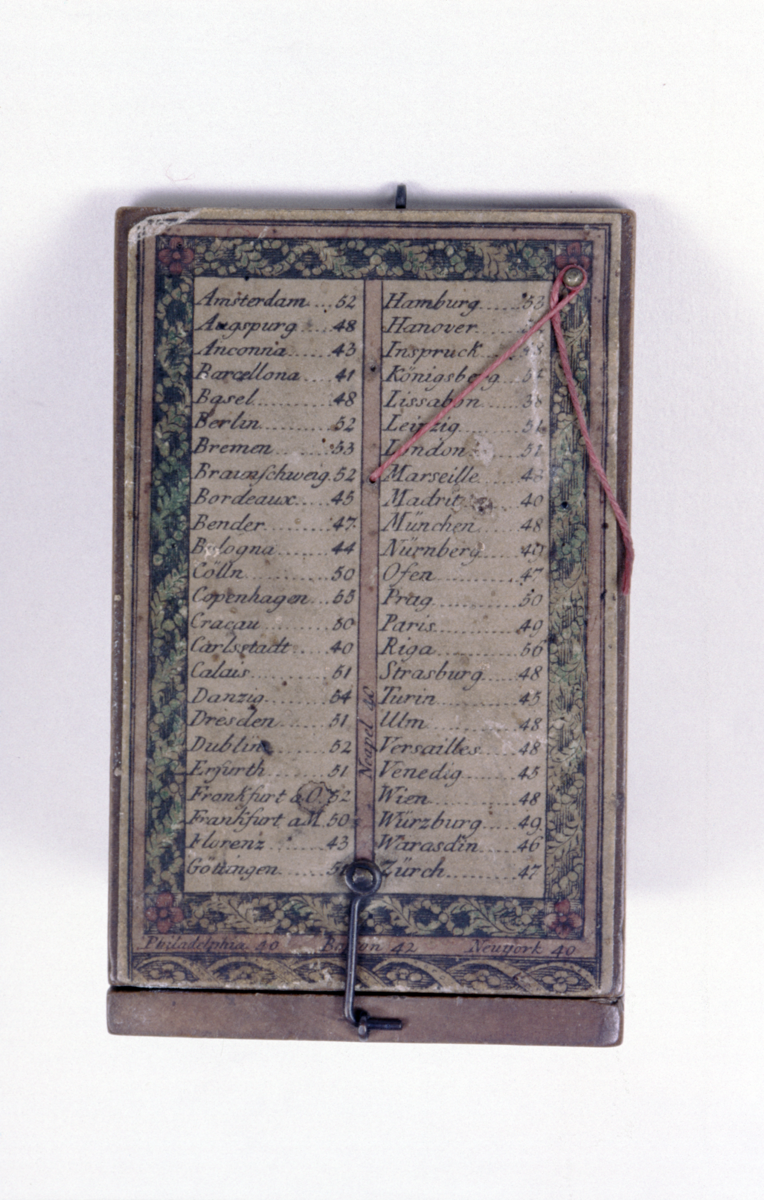 Amsterdam ... 52
Augspurg .... 48
Anconnia ..... 43
Barcellona .... 41
Basel ........ 48
Berlin ........ 52
Bremen ...... 53
Braunschweig. 52
Bordeaux .... 45
Bender ....... 47
Bologna ...... 44
Cölln ......... 50
Copenhagen ... 55
Cracau ....... 50
Carlsstadt .... 40
Calais ........ 51
Danzig ....... 54
Dresden ...... 51
Dublin ....... 52
Erfurth ....... 51
Frankfurt a O. 52
Frankfurt a.M. 50
Florenz ....... 43
Göttingen ..... 51
Neapel 40
Hamburg ..... 53
Hanover
Inspruck
Königsberg .... 54
Lissabon ..... 38
Leipzig ....... 51
London ...... 51
Marseille
Madrit ....... 40
München ..... 48
Nürnberg
Ofen ......... 47
Prag ......... 50
Paris ......... 49
Riga ......... 56
Strasburg .... 48
Turin ........ 45
Ulm ......... 48
Versailles .... 48
Venedig ...... 45
Wien ........ 48
Würzburg .... 49
Warasdin .... 46
Zürch ........ 47
Philadelphia 40 Boston 42 Neuyork 40